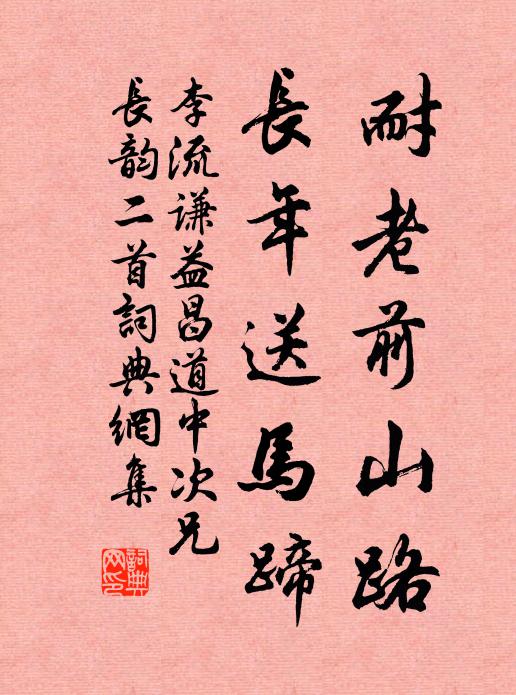 耐老前山路
長年送馬蹄
李流谦益昌道中次兄
長韵二首詞典網集
詞典
网印